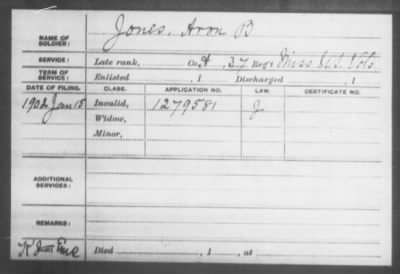 NAME OF SOLDIER: Jones, Aron B
SERVICE: Late rank, Co. A, 37 Reg't Miss Vols
TERM OF SERVICE: Enlisted , 1 Discharged , 1
DATE OF FILING. CLASS. APPLICATION NO. LAW. CERTIFICATE NO.
1902 Jan 15 Invalid, 1279581 J
Widow,
Minor,
ADDITIONAL SERVICES:
REMARKS:
Died , 1 , at